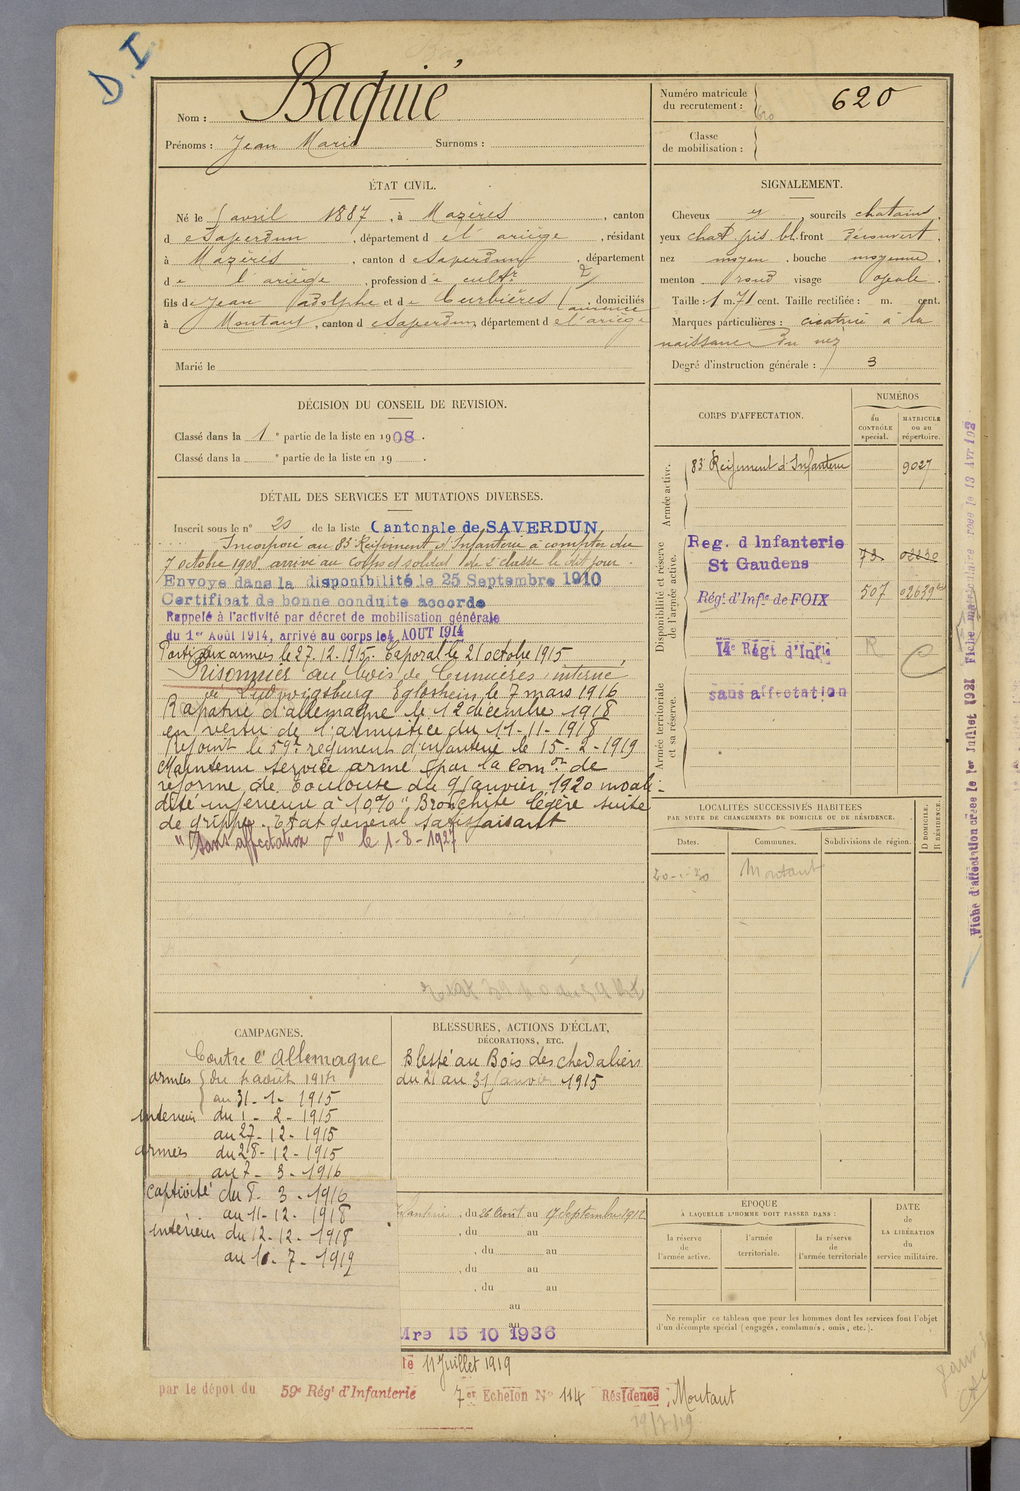 D.I
Nom : Baquié
Prénoms : Jean Marie Surnoms :
Numéro matricule du recrutement : 620
Classe de mobilisation :
ÉTAT CIVIL.
Né le 5 avril 1887, à Mazères, canton
d e Saverdun, département d e l'ariège, résidant
à Mazères, canton d e Saverdun, département
d e l'ariège, profession d e cultr
fils de Jean Adolphe et de Curbières Laurence, domiciliés
à Montaut, canton d e Saverdun, département d e l'ariège
Marié le
SIGNALEMENT.
Cheveux et, sourcils chatains.
yeux chat. gris bl. front découvert.
nez moyen, bouche moyenne.
menton rond visage ovale.
Taille : 1 m. 71 cent. Taille rectifiée : m. cent.
Marques particulières : cicatrice à la
naissance du nez
Degré d'instruction générale : 3
DÉCISION DU CONSEIL DE REVISION.
Classé dans la 1e partie de la liste en 1908.
Classé dans la e partie de la liste en 19 .
DÉTAIL DES SERVICES ET MUTATIONS DIVERSES.
Inscrit sous le n° 20 de la liste Cantonale de SAVERDUN
Incorporé au 83e Régiment d'Infanterie à compter du
7 octobre 1908, arrivé au corps et soldat de 2e classe le dit jour.
Envoyé dans la disponibilité le 25 Septembre 1910
Certificat de bonne conduite accordé
Rappelé à l'activité par décret de mobilisation générale
du 1er Août 1914, arrivé au corps le 4 AOUT 1914
Parti aux armées le 27.12.1915. Caporal le 21 octobre 1915
Prisonnier au bois de Cumières, interné
à Ludwigsburg Eglosheim le 7 mars 1916
Rapatrié d'allemagne le 12 décembre 1918
en vertu de l'armistice du 11-11-1918
Rejoint le 59e régiment d'infanterie le 15-2-1919
Maintenu service armé par la comon de
réforme de Toulouse du 9 Janvier 1920 invali-
dité inférieur à 10% "Bronchite légère suite
de grippe. Etat general satisfaisant
"Sans affectation" le 1-8-1927
CORPS D'AFFECTATION.
NUMÉROS
du CONTRÔLE spécial.
MATRICULE ou au répertoire.
Armée active.
83e Régiment d'Infanterie 9027
Disponibilité et réserve de l'armée active.
Reg. d Infanterie
St Gaudens
Régt d'Infie de FOIX 507
14e Régt d'Infie R C
Armée territoriale et sa réserve.
sans affectation
LOCALITÉS SUCCESSIVES HABITÉES
PAR SUITE DE CHANGEMENTS DE DOMICILE OU DE RÉSIDENCE.
Dates. Communes. Subdivisions de région. D DOMICILE. R RÉSIDENCE.
Montaut
Fiche d'affectation créée le 1er Juillet 1921
CAMPAGNES.
Contre l'Allemagne
armées du 4 août 1914
au 31-1-1915
intérieur du 1-2-1915
au 27-12-1915
armées du 28-12-1915
au 7-3-1916
captivité du 8-3-1916
au 11-12-1918
intérieur du 12-12-1918
au 10-7-1919
BLESSURES, ACTIONS D'ÉCLAT,
DÉCORATIONS, ETC.
Blessé au Bois des chevaliers
du 21 au 31 Janvier 1915
Infanterie, du 26 Août au 17 Septembre 1912
, du au
, du au
, du au
, du au
au
au
Mre 15 10 1936
ÉPOQUE
À LAQUELLE L'HOMME DOIT PASSER DANS :
la réserve de l'armée active.
l'armée territoriale.
la réserve de l'armée territoriale
DATE de LA LIBÉRATION du service militaire.
Ne remplir ce tableau que pour les hommes dont les services font l'objet
d'un décompte spécial (engagés, condamnés, omis, etc.).
le 11 Juillet 1919
par le dépôt du 59e Régt d'Infanterie 7er Echelon No 114 Résidence Montaut
19/7/19